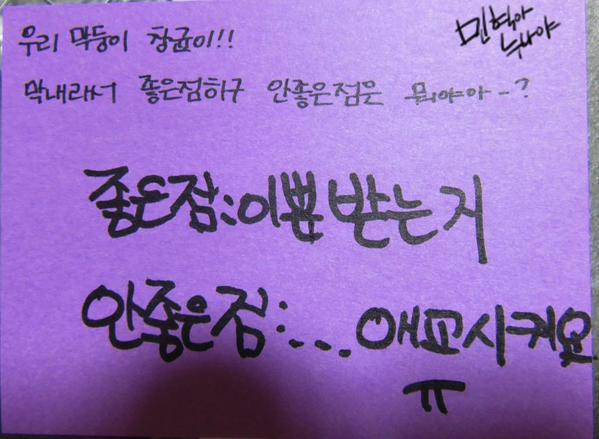 우리 막둥이 창균이!!
민혁아
누나야
막내라서 좋은점하구 안좋은점은 뭐야아-?
좋은점:이쁨받는거
안좋은점:... 애교시켜요
ㅠ